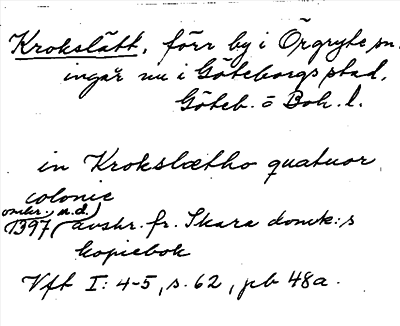 Krokslätt, förr by i Örgryte sn.
ingår nu i Göteborgs stad,
Göteb. o Boh. l.
in Krokslætho quatuor
colonie
omkr., u.d.)
1397 (avskr. fr. Skara domk:s
kopiebok
Vft I: 4-5, s. 62, pb 48a.